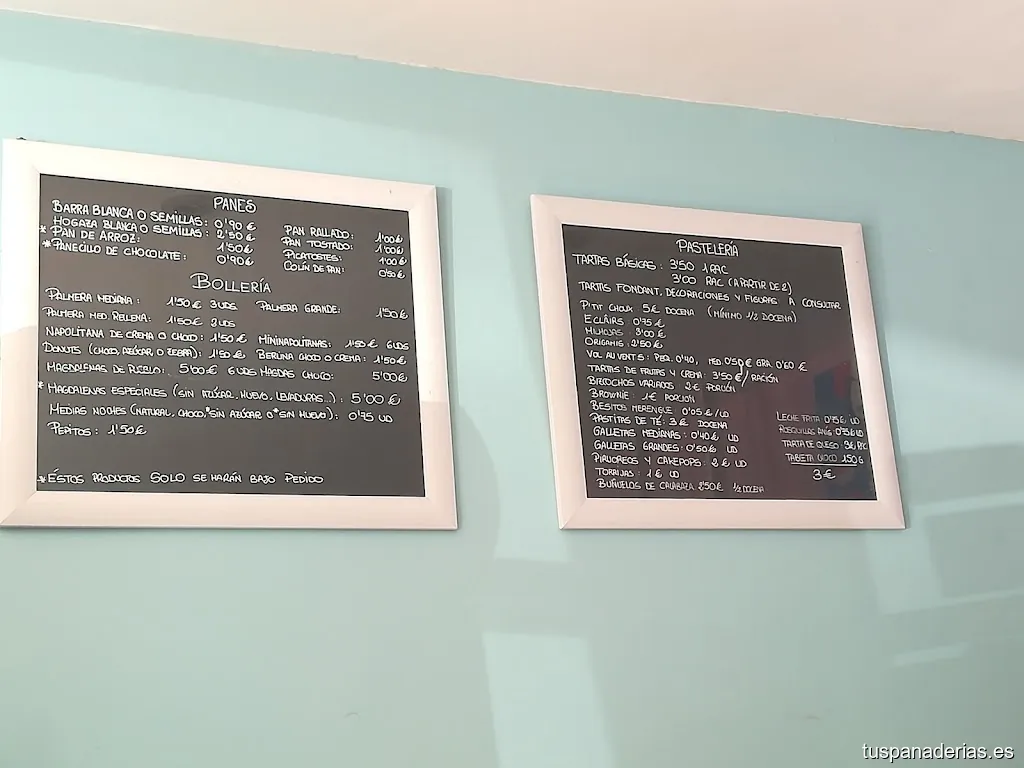 PANES
BARRA BLANCA O SEMILLAS: 0'90 €
HOGAZA BLANCA O SEMILLAS: 2'50 €
* PAN DE ARROZ: 1'50 €
* PANECILLO DE CHOCOLATE: 0'90€
PAN RALLADO: 1'00€
PAN TOSTADO: 1'00€
PICATOSTES: 1'00€
COLÍN DE PAN: 0'50€
BOLLERÍA
PALMERA MEDIANA: 1'50€ 3UDS PALMERA GRANDE: 1'50€
PALMERA MED. RELLENA: 1'50€ 2UDS
NAPOLITANA DE CREMA O CHOCO: 1'50€ MININAPOLITANAS: 1'50€ 6UDS
DONUTS (CHOCO, AZÚCAR O ZEBRA): 1'50€ BERLINA CHOCO O CREMA: 1'50€
MAGDALENAS DE PUEBLO: 5'00€ 6UDS MAGDAS CHOCO: 5'00€
* MAGDALENAS ESPECIALES (SIN AZÚCAR, HUEVO, LEVADURAS..): 5'00€
MEDIAS NOCHES (NATURAL, CHOCO,*SIN AZÚCAR O*SIN HUEVO): 0'75 UD
PEPITOS: 1'50€
*ÉSTOS PRODUCTOS SOLO SE HARÁN BAJO PEDIDO
PASTELERÍA
TARTAS BÁSICAS: 3'50 1 RAC
3'00 RAC (A PARTIR DE 2)
TARTAS FONDANT, DECORACIONES Y FIGURAS: A CONSULTAR
P'TIT CHOUX 5€ DOCENA (MÍNIMO 1/2 DOCENA)
ECLAIRS 0'75€
MILHOJAS: 3'00€
ORIGAMIS: 2'50€
VOL AU VENTS: PEQ. 0'40, MED 0'50€ GRA 0'60€
TARTAS DE FRUTAS Y CREMA: 3'50€/RACIÓN
BIZCOCHOS VARIADOS 2€ PORCIÓN
BROWNIE: 1€ PORCIÓN
BESITOS MERENGUE: 0'05€/UD
PASTITAS DE TÉ: 3€ DOCENA
GALLETAS MEDIANAS: 0'40€ UD
GALLETAS GRANDES: 0'50€ UD
PIRUOREOS Y CAKEPOPS: 2€ UD
TORRIJAS: 1€ UD
BUÑUELOS DE CALABAZA 2'50€ 1/2 DOCENA
LECHE FRITA 0'75€ UD
ROSQUILLAS ANÍS 0'35€ UD
TARTA DE QUESO: 3€
TABLETA CHOCO 150G
3€
tuspanaderias.es